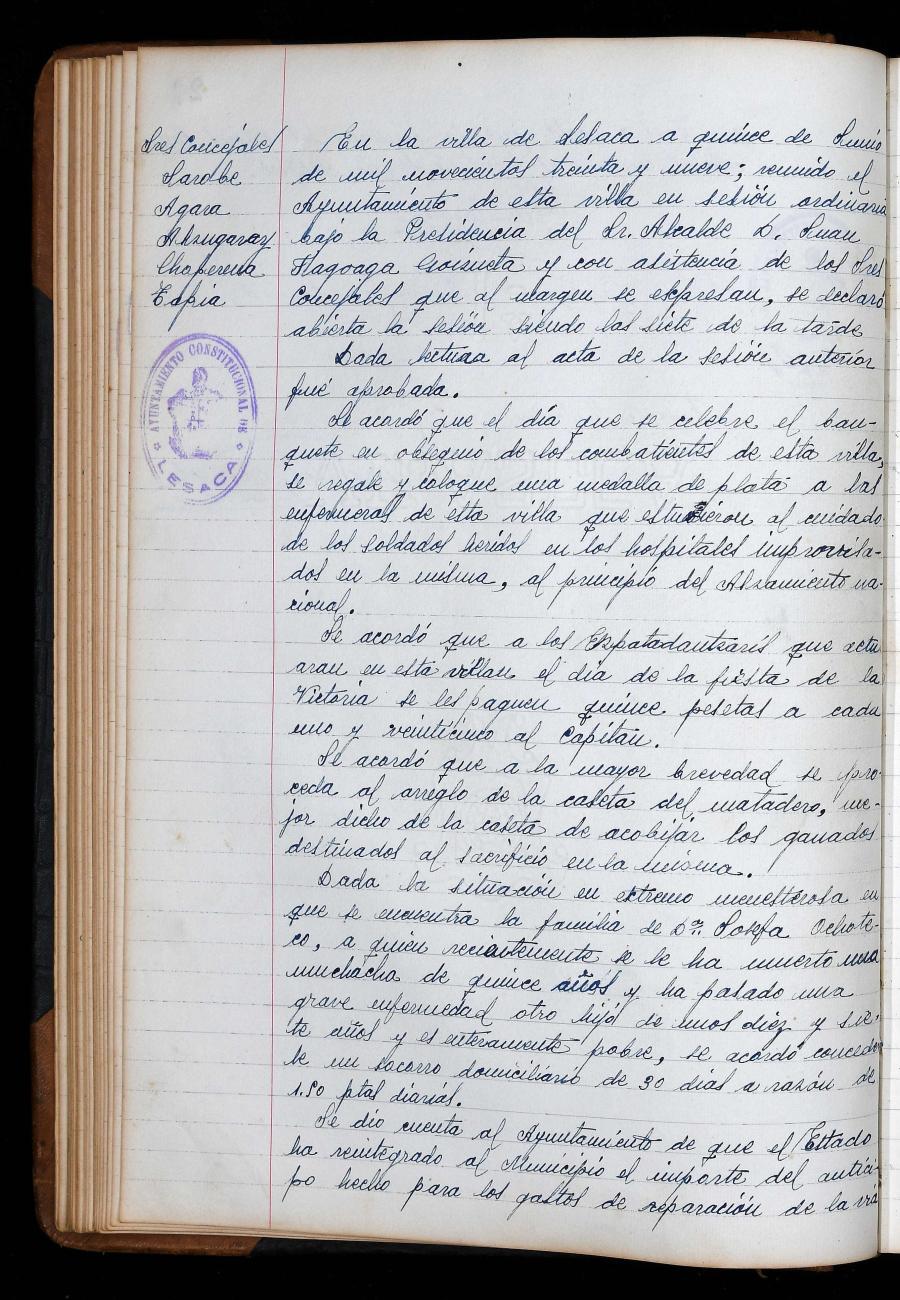 Sres Concejales
Sarobe
Agara
Alzugaray
Choperena
Tapia
AYUNTAMIENTO CONSTITUCIONAL DE
LESACA
En la villa de Lesaca a quince de Junio
de mil novecientos treinta y nueve; reunido el
Ayuntamiento de esta villa en sesión ordinaria
bajo la Presidencia del Sr. Alcalde D. Juan
Flagoaga Goizueta y con asistencia de los Sres
Concejales que al margen se expresan, se declaró
abierta la sesión siendo las siete de la tarde
Dada lectura al acta de la sesión anterior
fué aprobada.
Se acordó que el día que se celebre el ban-
quete en obsequio de los combatientes de esta villa,
se regale y coloque una medalla de plata a las
enfermeras de esta villa que estuvieron al cuidado
de los soldados heridos en los hospitales improvisa-
dos en la misma, al principio del Alzamiento na-
cional.
Se acordó que a los Ezpatadantzaris que actu
aran en esta villan el día de la fiesta de la
Victoria se les paguen quince pesetas a cada
uno y veinticinco al Capitán.
Se acordó que a la mayor brevedad se pro-
ceda al arreglo de la caseta del matadero, me-
jor dicho de la caseta de acobijar los ganados
destinados al sacrificio en la misma.
Dada la situación en extremo menesterosa en
que se encuentra la familia de Dª. Josefa Ochote-
co, a quien recientemente se le ha muerto una
muchacha de quince años y ha pasado una
grave enfermedad otro hijo de unos diez y sie-
te años y es enteramente pobre, se acordó conceder
le un socorro domiciliario de 30 días a razón de
1.50 ptas diarias.
Se dio cuenta al Ayuntamiento de que el Estado
ha reintegrado al Municipio el importe del antici-
po hecho para los gastos de reparación de la vía